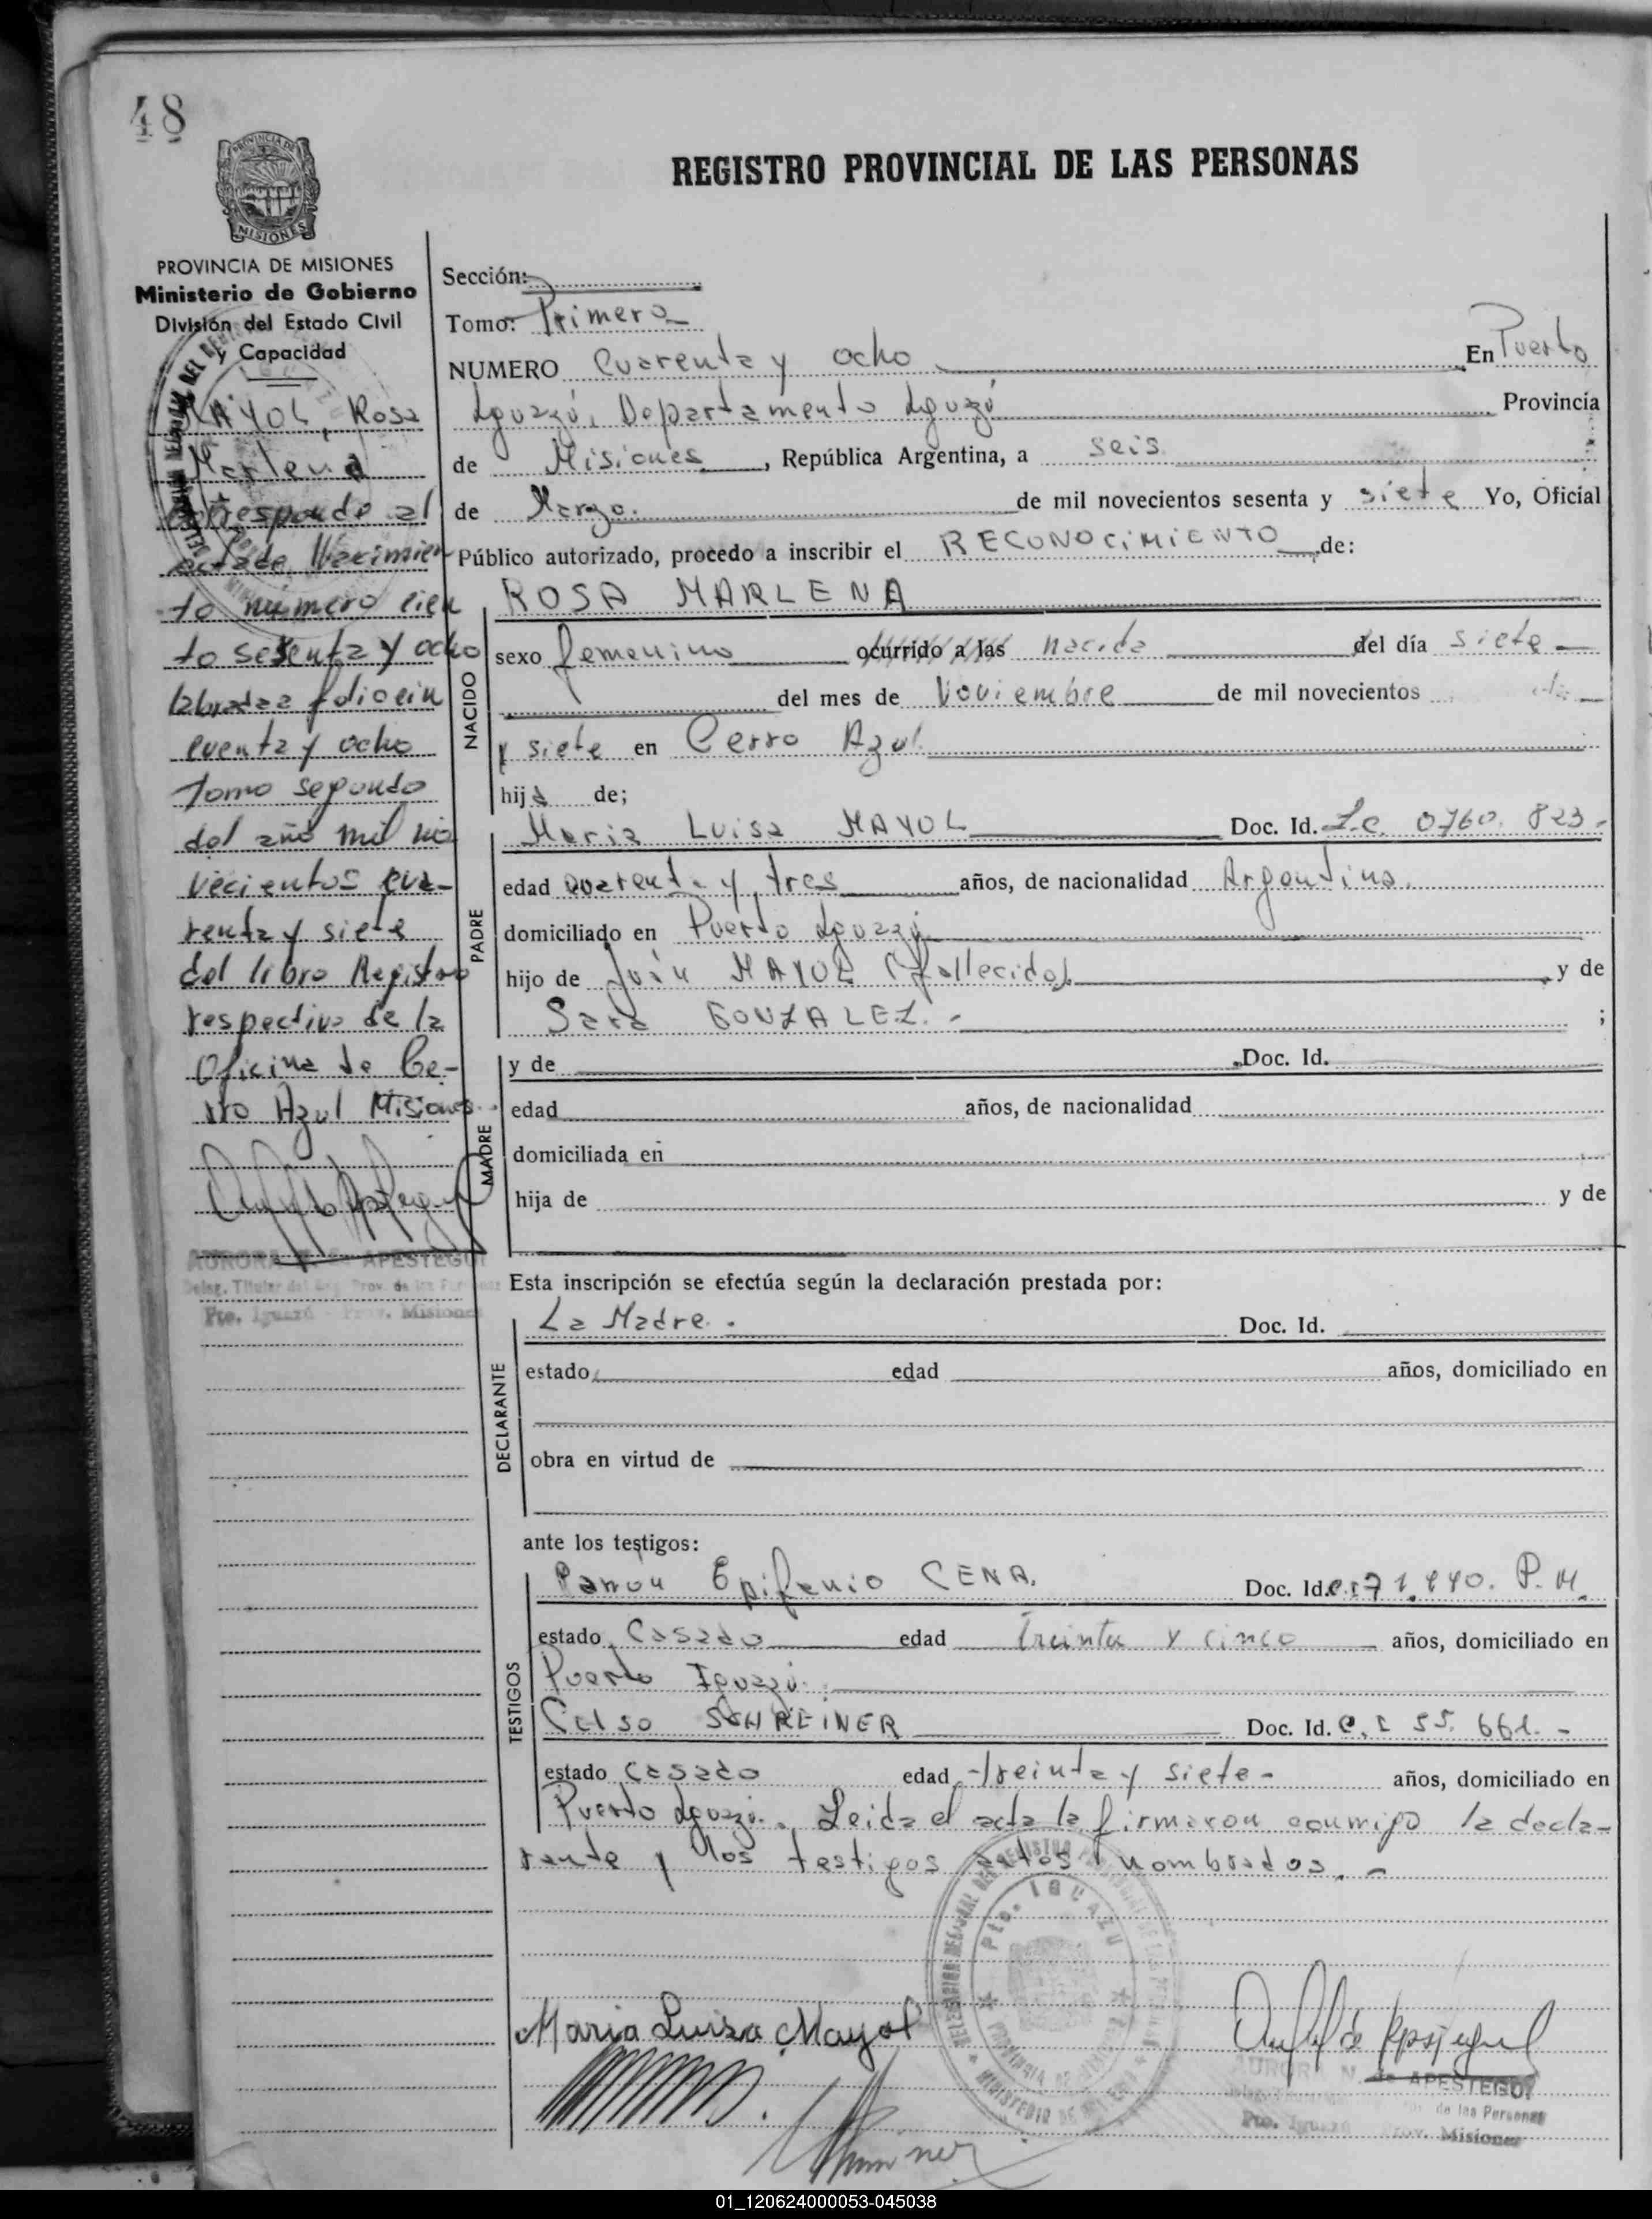 48
PROVINCIA DE
MISIONES
REGISTRO PROVINCIAL DE LAS PERSONAS
PROVINCIA DE MISIONES
Ministerio de Gobierno
División del Estado Civil
y Capacidad
MAYOL, Rosa
Marlena
corresponde al
acta de Nacimien
to número cien
to sesenta y ocho
labrada folio cin
cuenta y ocho
Tomo segundo
del año mil no
vecientos cua-
renta y siete
del libro Registro
respectivo de la
Oficina de Ce-
rro Azul Misiones.
AURORA APESTEGUI
Deleg. Titular del Prov. de las
Pto. Iguazú - Prov. Misiones
Sección:
Tomo: Primero
NUMERO Cuarenta y ocho En Puerto
Iguazú, Departamento Iguazú Provincia
de Misiones, República Argentina, a seis
de Marzo. de mil novecientos sesenta y siete Yo, Oficial
Público autorizado, procedo a inscribir el RECONOCIMIENTO de:
ROSA MARLENA
NACIDO
sexo femenino ocurrido a las nacida del día siete
del mes de Noviembre de mil novecientos
y siete en Cerro Azul
hija de;
PADRE
Maria Luisa MAYOL Doc. Id. L.C. 0760.823-
edad cuarenta y tres años, de nacionalidad Argentina.
domiciliado en Puerto Iguazú
hijo de Juan MAYOL (fallecido) y de
Sara GONZALEZ.- ;
MADRE
y de Doc. Id.
edad años, de nacionalidad
domiciliada en
hija de y de
Esta inscripción se efectúa según la declaración prestada por:
DECLARANTE
La Madre. Doc. Id.
estado edad años, domiciliado en
obra en virtud de
ante los testigos:
TESTIGOS
Ramon Epifanio CENA. Doc. Id. P.M.
estado Casado edad treinta y cinco años, domiciliado en
Puerto Iguazú.
Celso SCHREINER Doc. Id. C.I 55.661.-
estado casado edad treinta y siete- años, domiciliado en
Puerto Iguazú. Leida el acta la firmaron conmigo la decla-
rante y los testigos antes nombrados.-
Pto. IGUAZU
Maria Luisa Mayol
AURORA N. de APESTEGUI
de las Personas
Pto. Iguazú Prov. Misiones
01_120624000053-045038